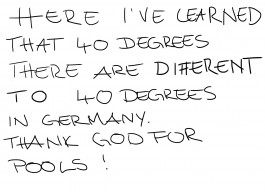 HERE I'VE LEARNED
THAT 40 DEGREES
THERE ARE DIFFERENT
TO 40 DEGREES
IN GERMANY.
THANK GOD FOR
POOLS!